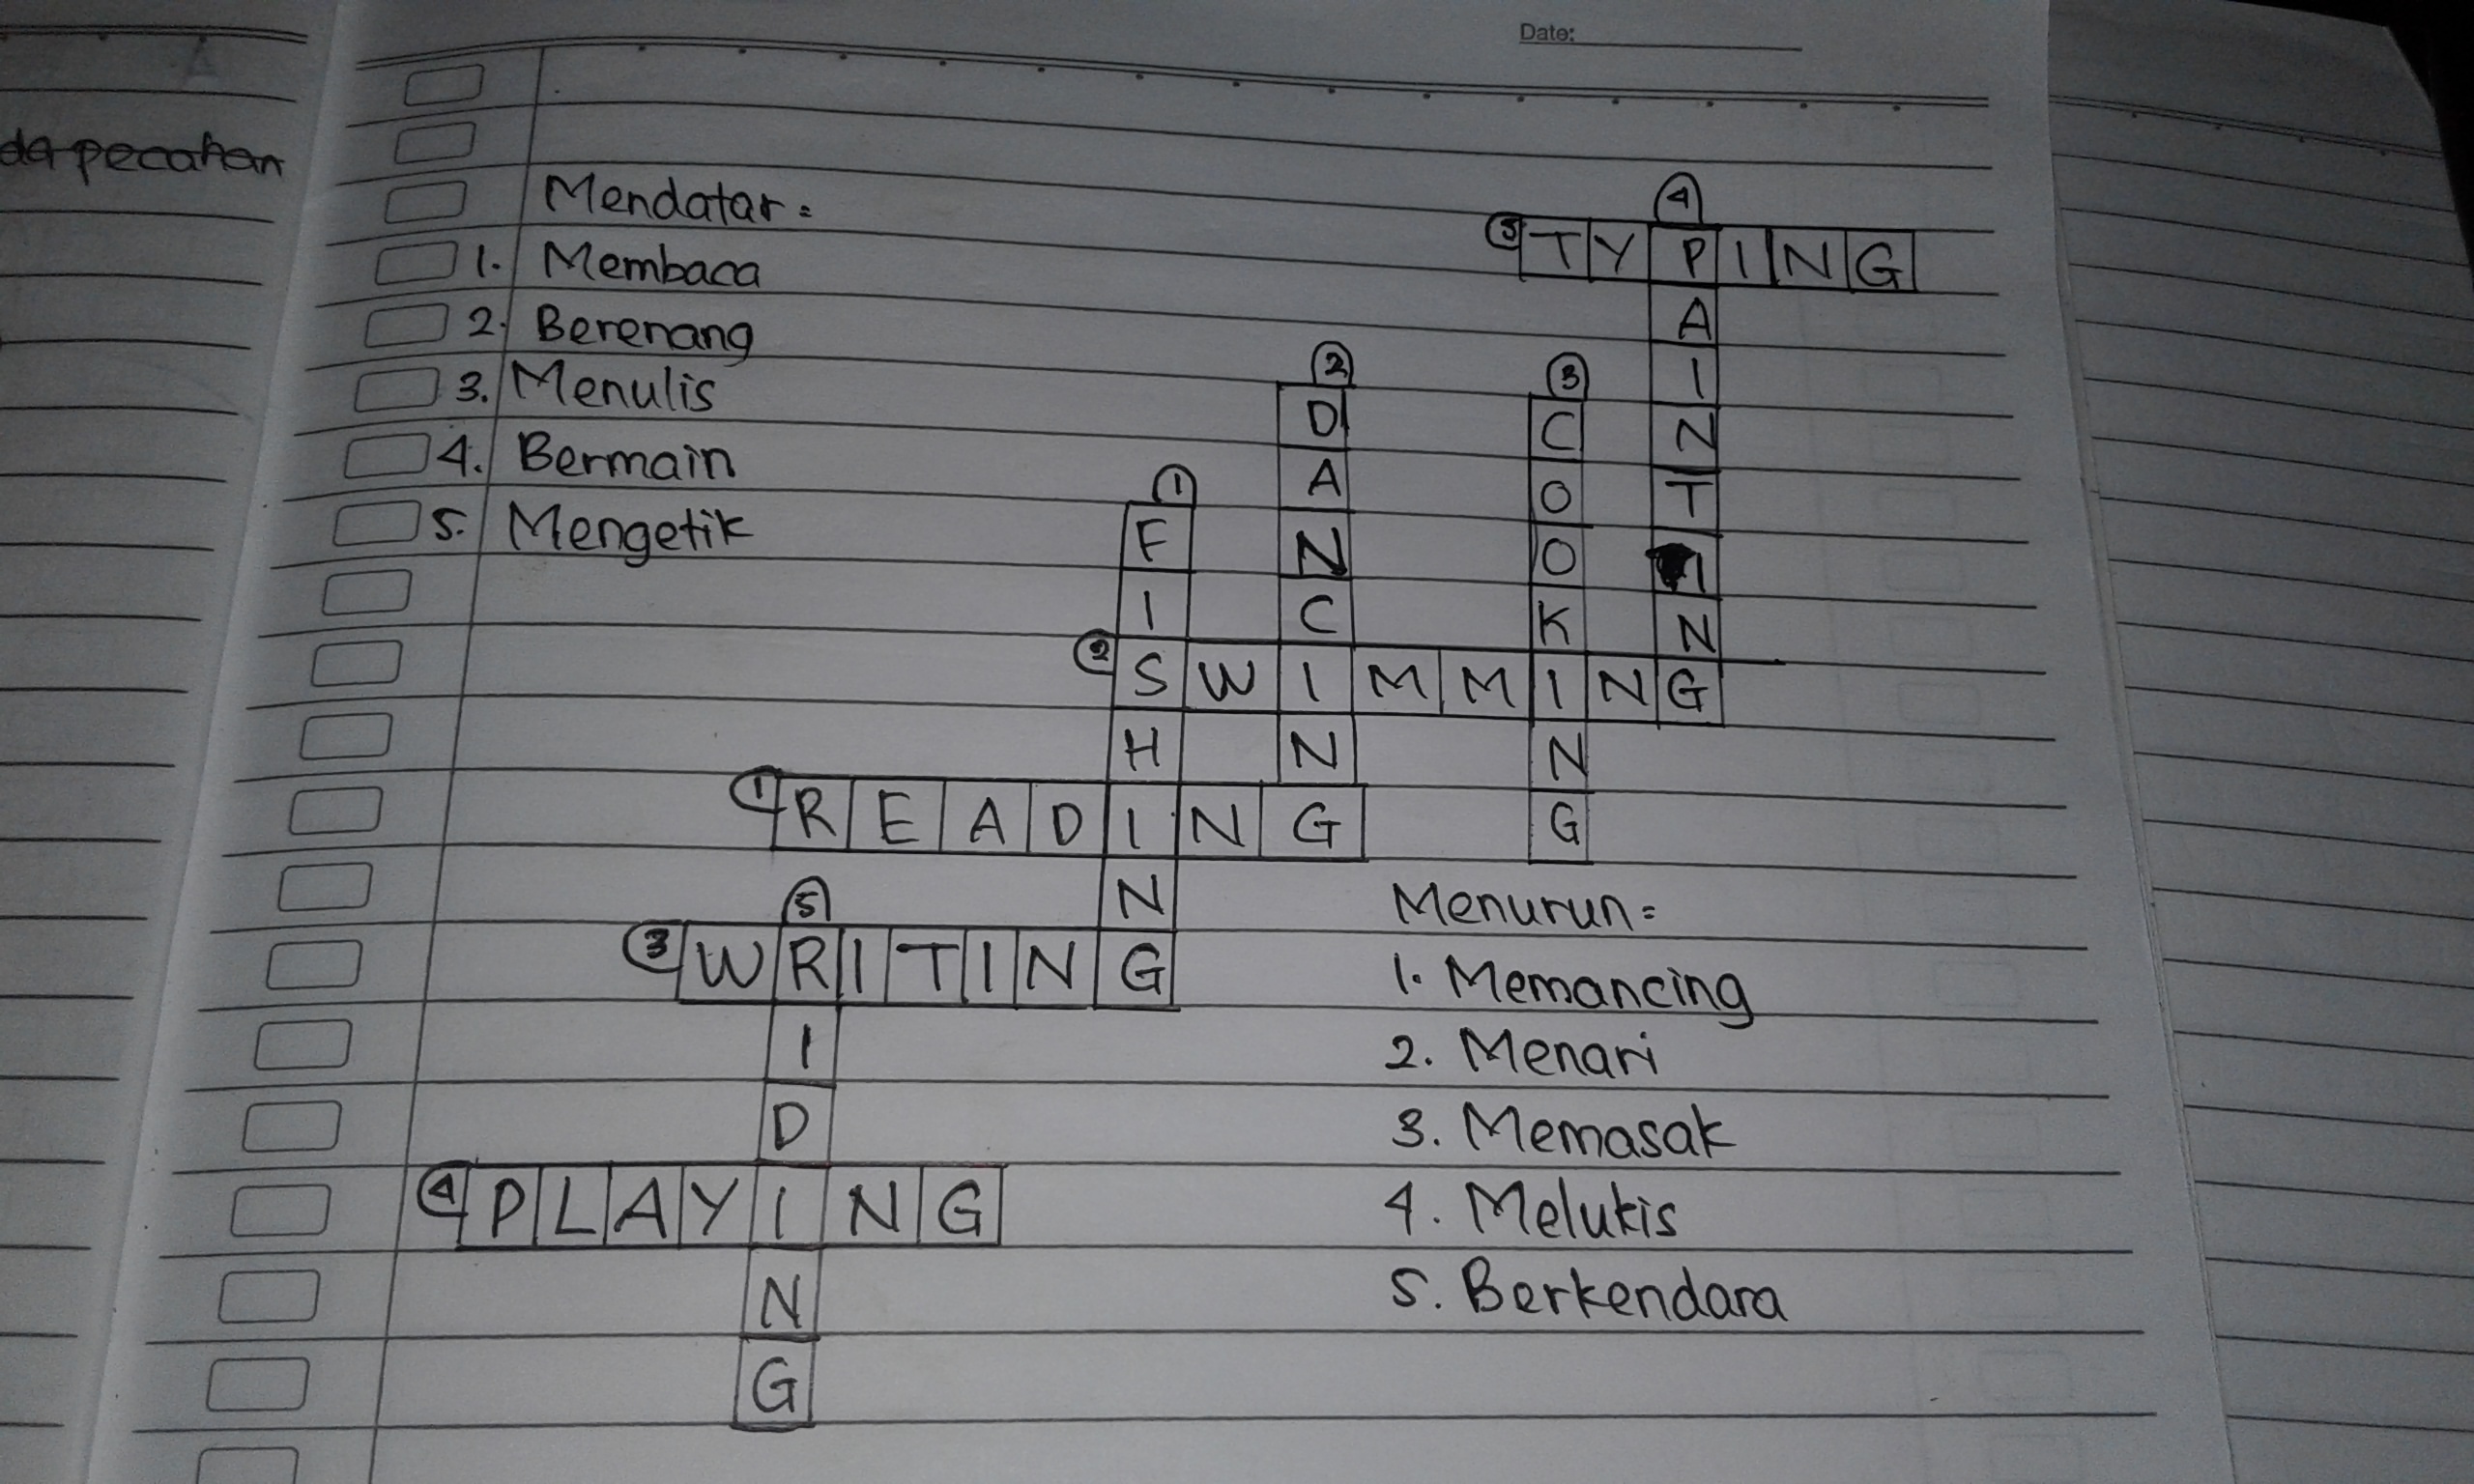 da pecahan
Date:
Mendatar =
1. Membaca
2. Berenang
3. Menulis
4. Bermain
5. Mengetik
5 TYPING
4 PAINTING
2 DANCING
3 COOKING
1 FISHING
2 SWIMMING
1 READING
3 WRITING
5 RIDING
4 PLAYING
Menurun =
1. Memancing
2. Menari
3. Memasak
4. Melukis
5. Berkendara